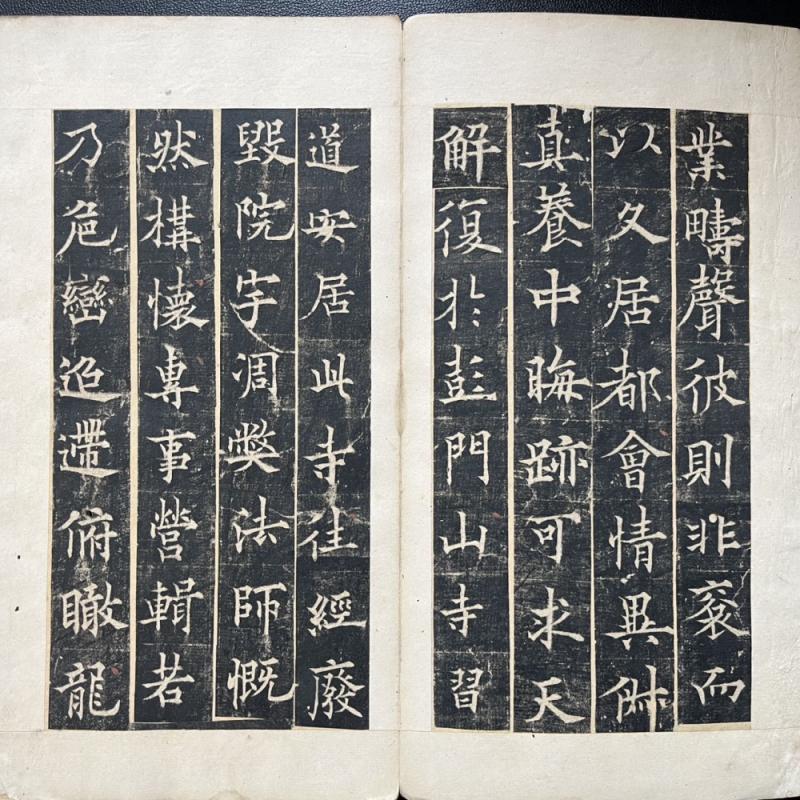 業疇聲彼則非衮而
以久居都會情異
真養中晦跡可求天
解復於彭門山寺習
道安居此寺往經廢
毀院宇凋弊法師慨
然構懷專事營輯若
乃危巒迢遰俯瞰龍